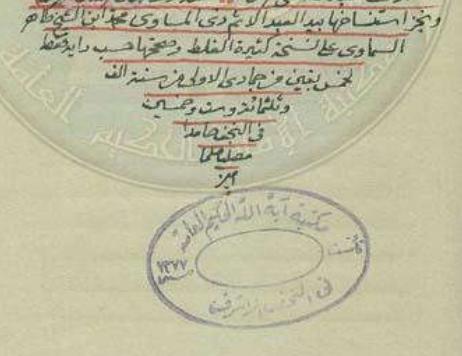 ونجز استنساخها بيد العبد الاثم ذي المساوى محمد ابن الشيخ طاهر
السماوي على نسخة كثيرة الغلط وصححها حسب
لخمس بقين من جمادى الاولى من سنة الف
وثلثمائة وست وخمسين
في النجف حامدا
مصليا مسلما
مكتبة آية الله الحكيم العامة
تأسست
١٣٧٧
في النجف الاشرف